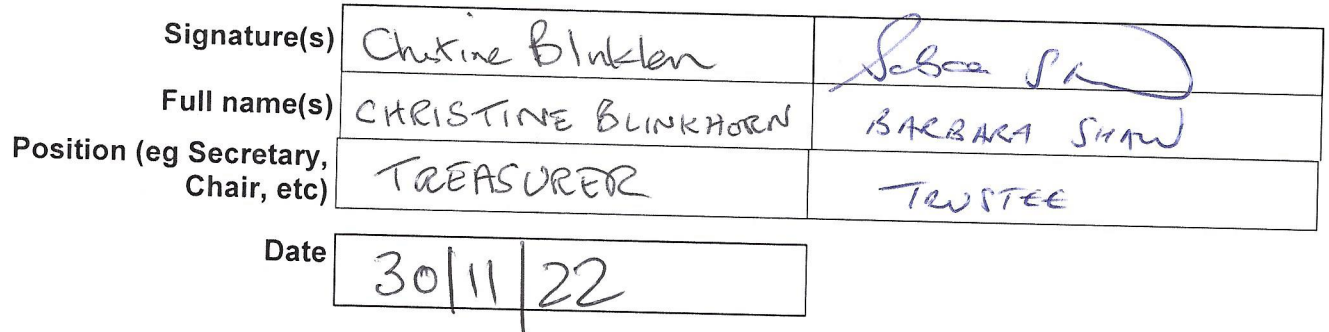 Signature(s) Christine Blinkhorn
Full name(s) CHRISTINE BLINKHORN BARBARA SHAW
Position (eg Secretary,
Chair, etc) TREASURER TRUSTEE
Date 30/11/22